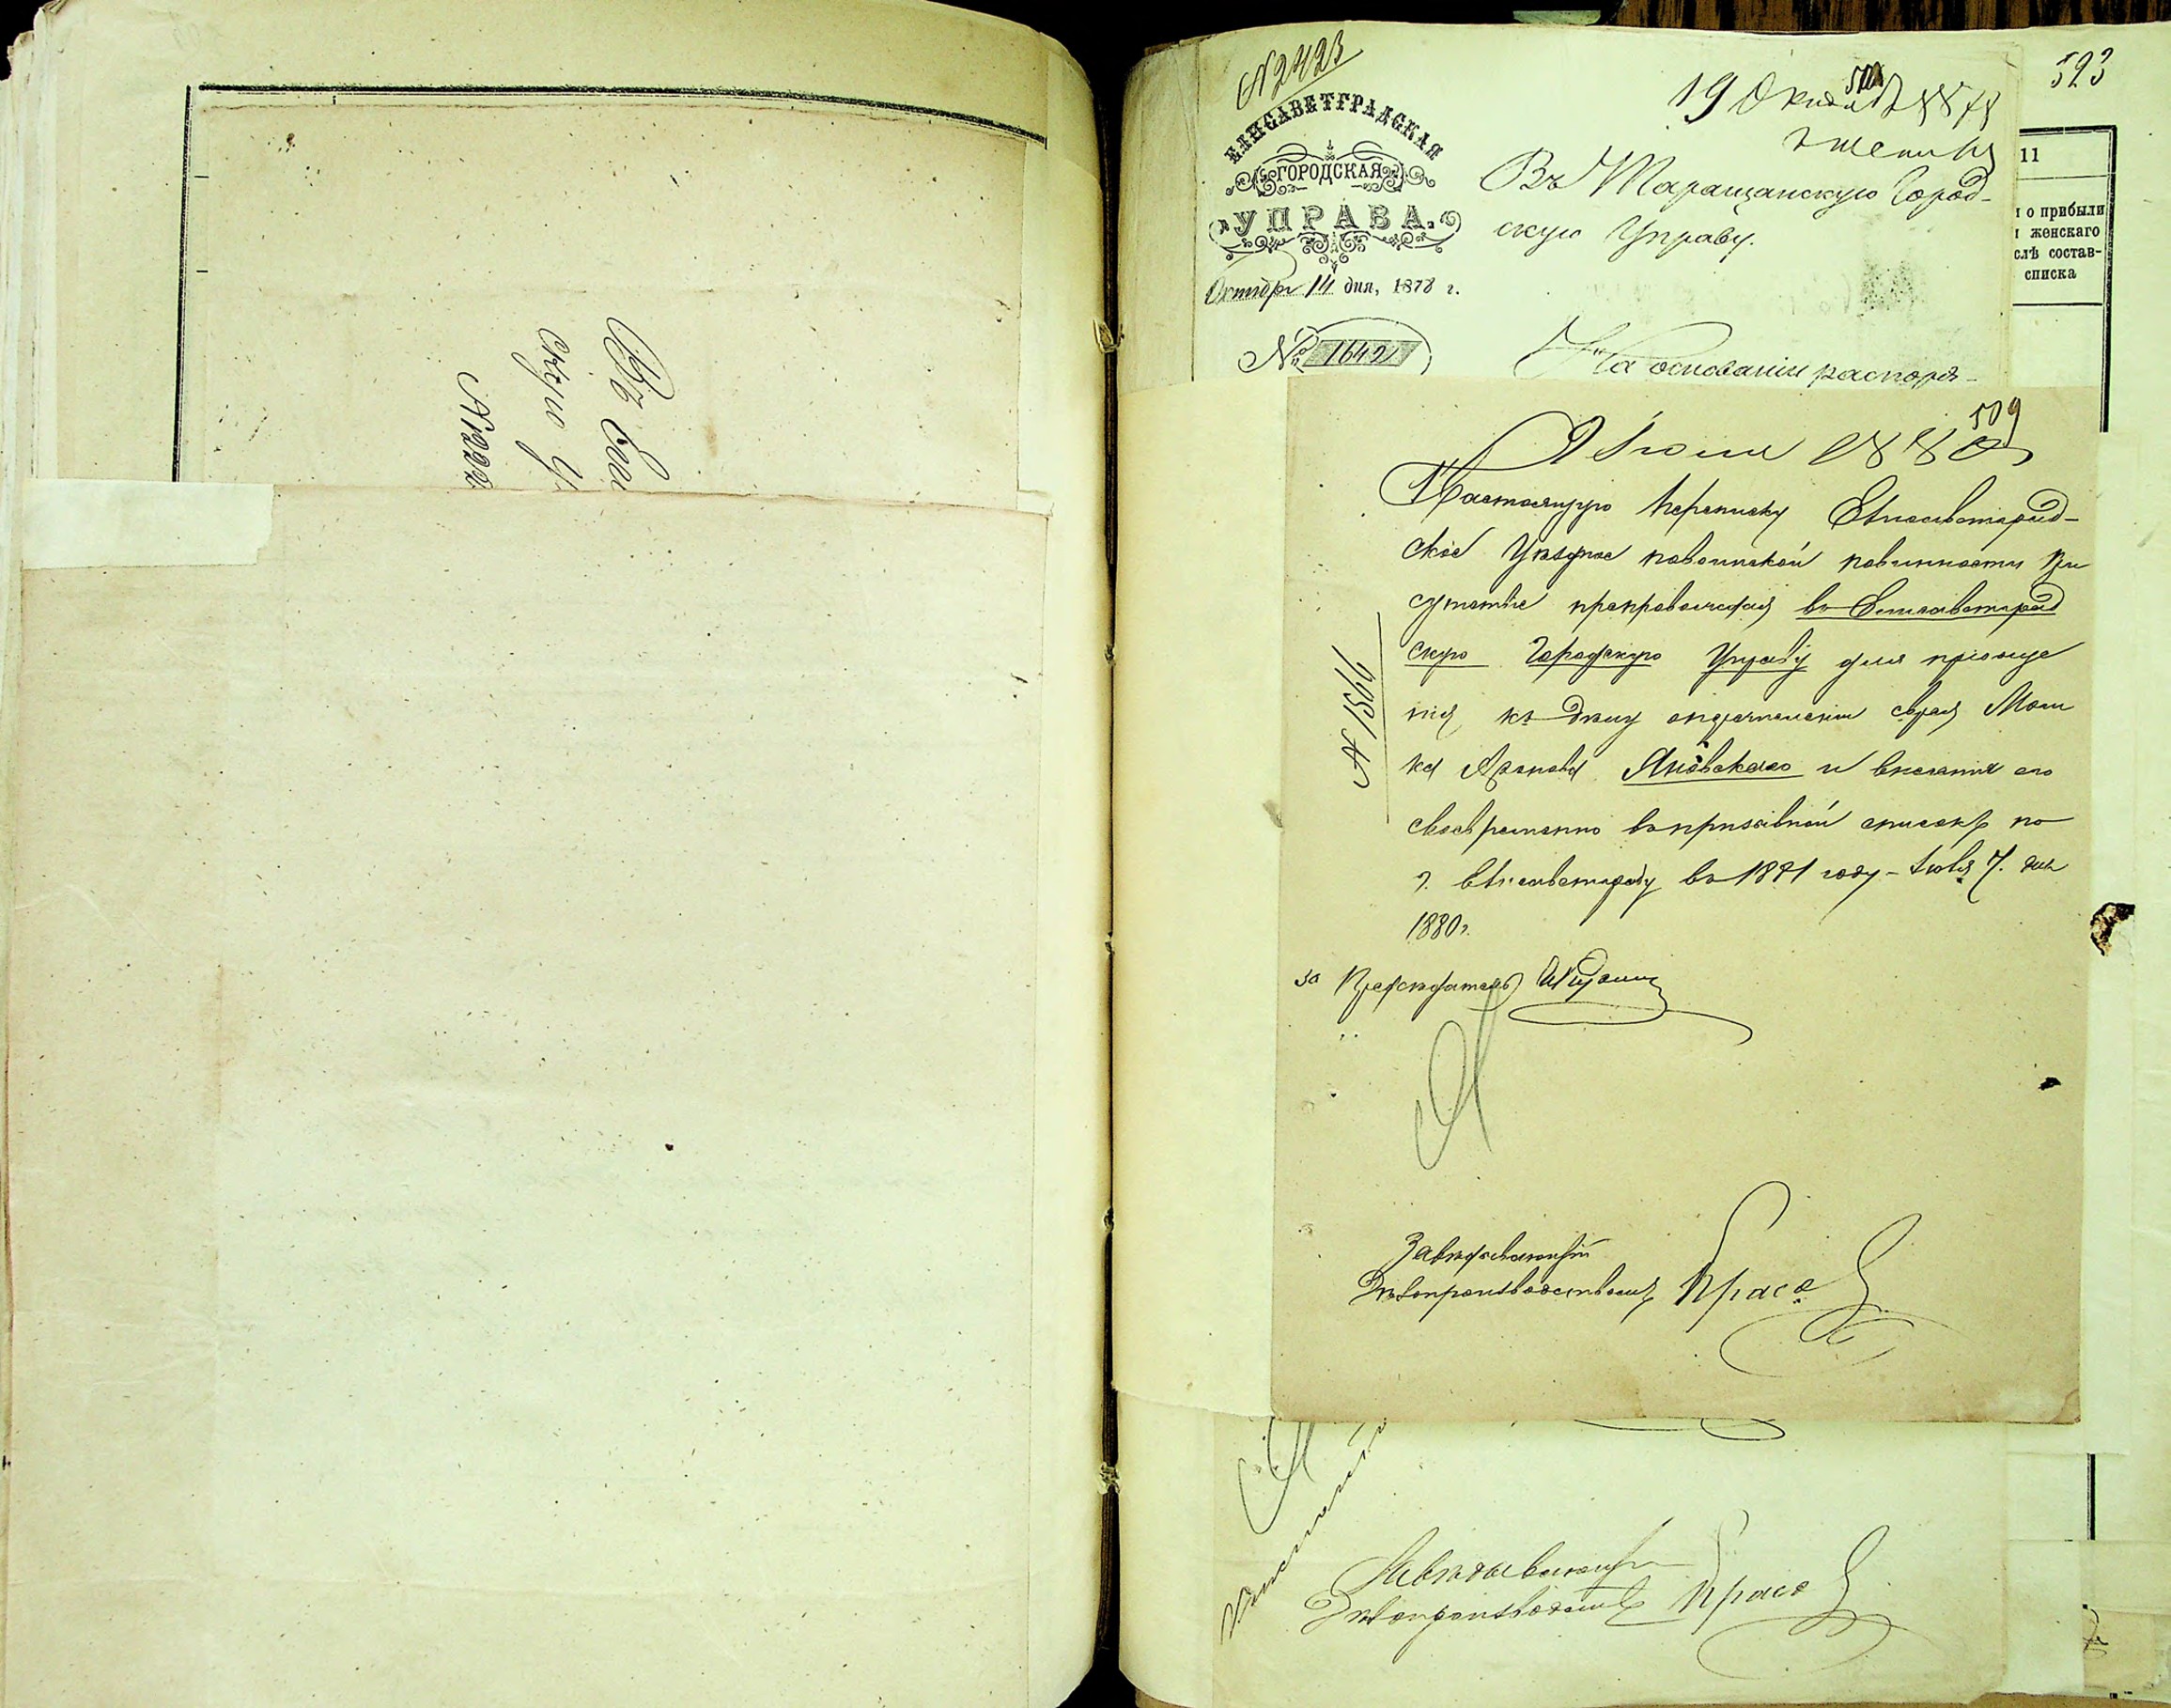 Въ
скую
№222
№2423
ЕЛИСАВЕТГРАДСКАЯ
ГОРОДСКАЯ
УПРАВА.
Октября 14 дня, 1878 г.
№ 1642
19 Октяб 1878
523
Въ Таращанскую Город-
скую Управу.
На основаніи распоря-
11
о прибыли
женскаго
слѣ состав-
списка
509
9 Іюля 1880
Настоящую переписку Елисаветград-
ское Уѣздное по воинской повинности при
сутствіе препровождаетъ въ Елисаветград
скую Городскую Управу для пріобще
нія къ дѣлу еврея Мош
ка Аронова Яновскаго и внесенія его
своевременно въ призывной списокъ по
г. Елисаветграду въ 1881 году - Іюля 7. дня
1880 г.
№ 1566
за Предсѣдатель
Завѣдывающій
Дѣлопроизводствомъ Красо
Завѣдывающій
Дѣлопроизводств Красо